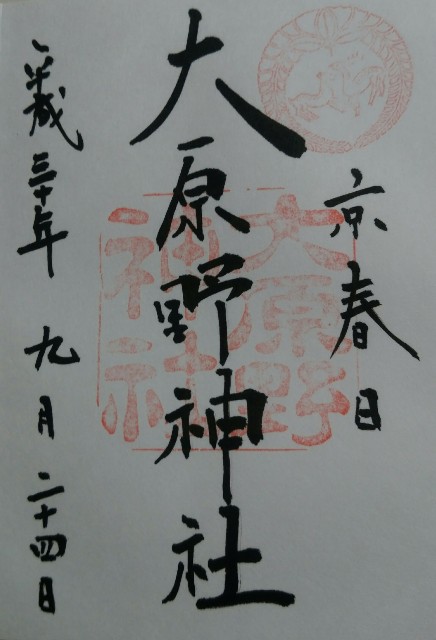 京春日
大原野神社
平成三十年九月二十四日
大原野
神社